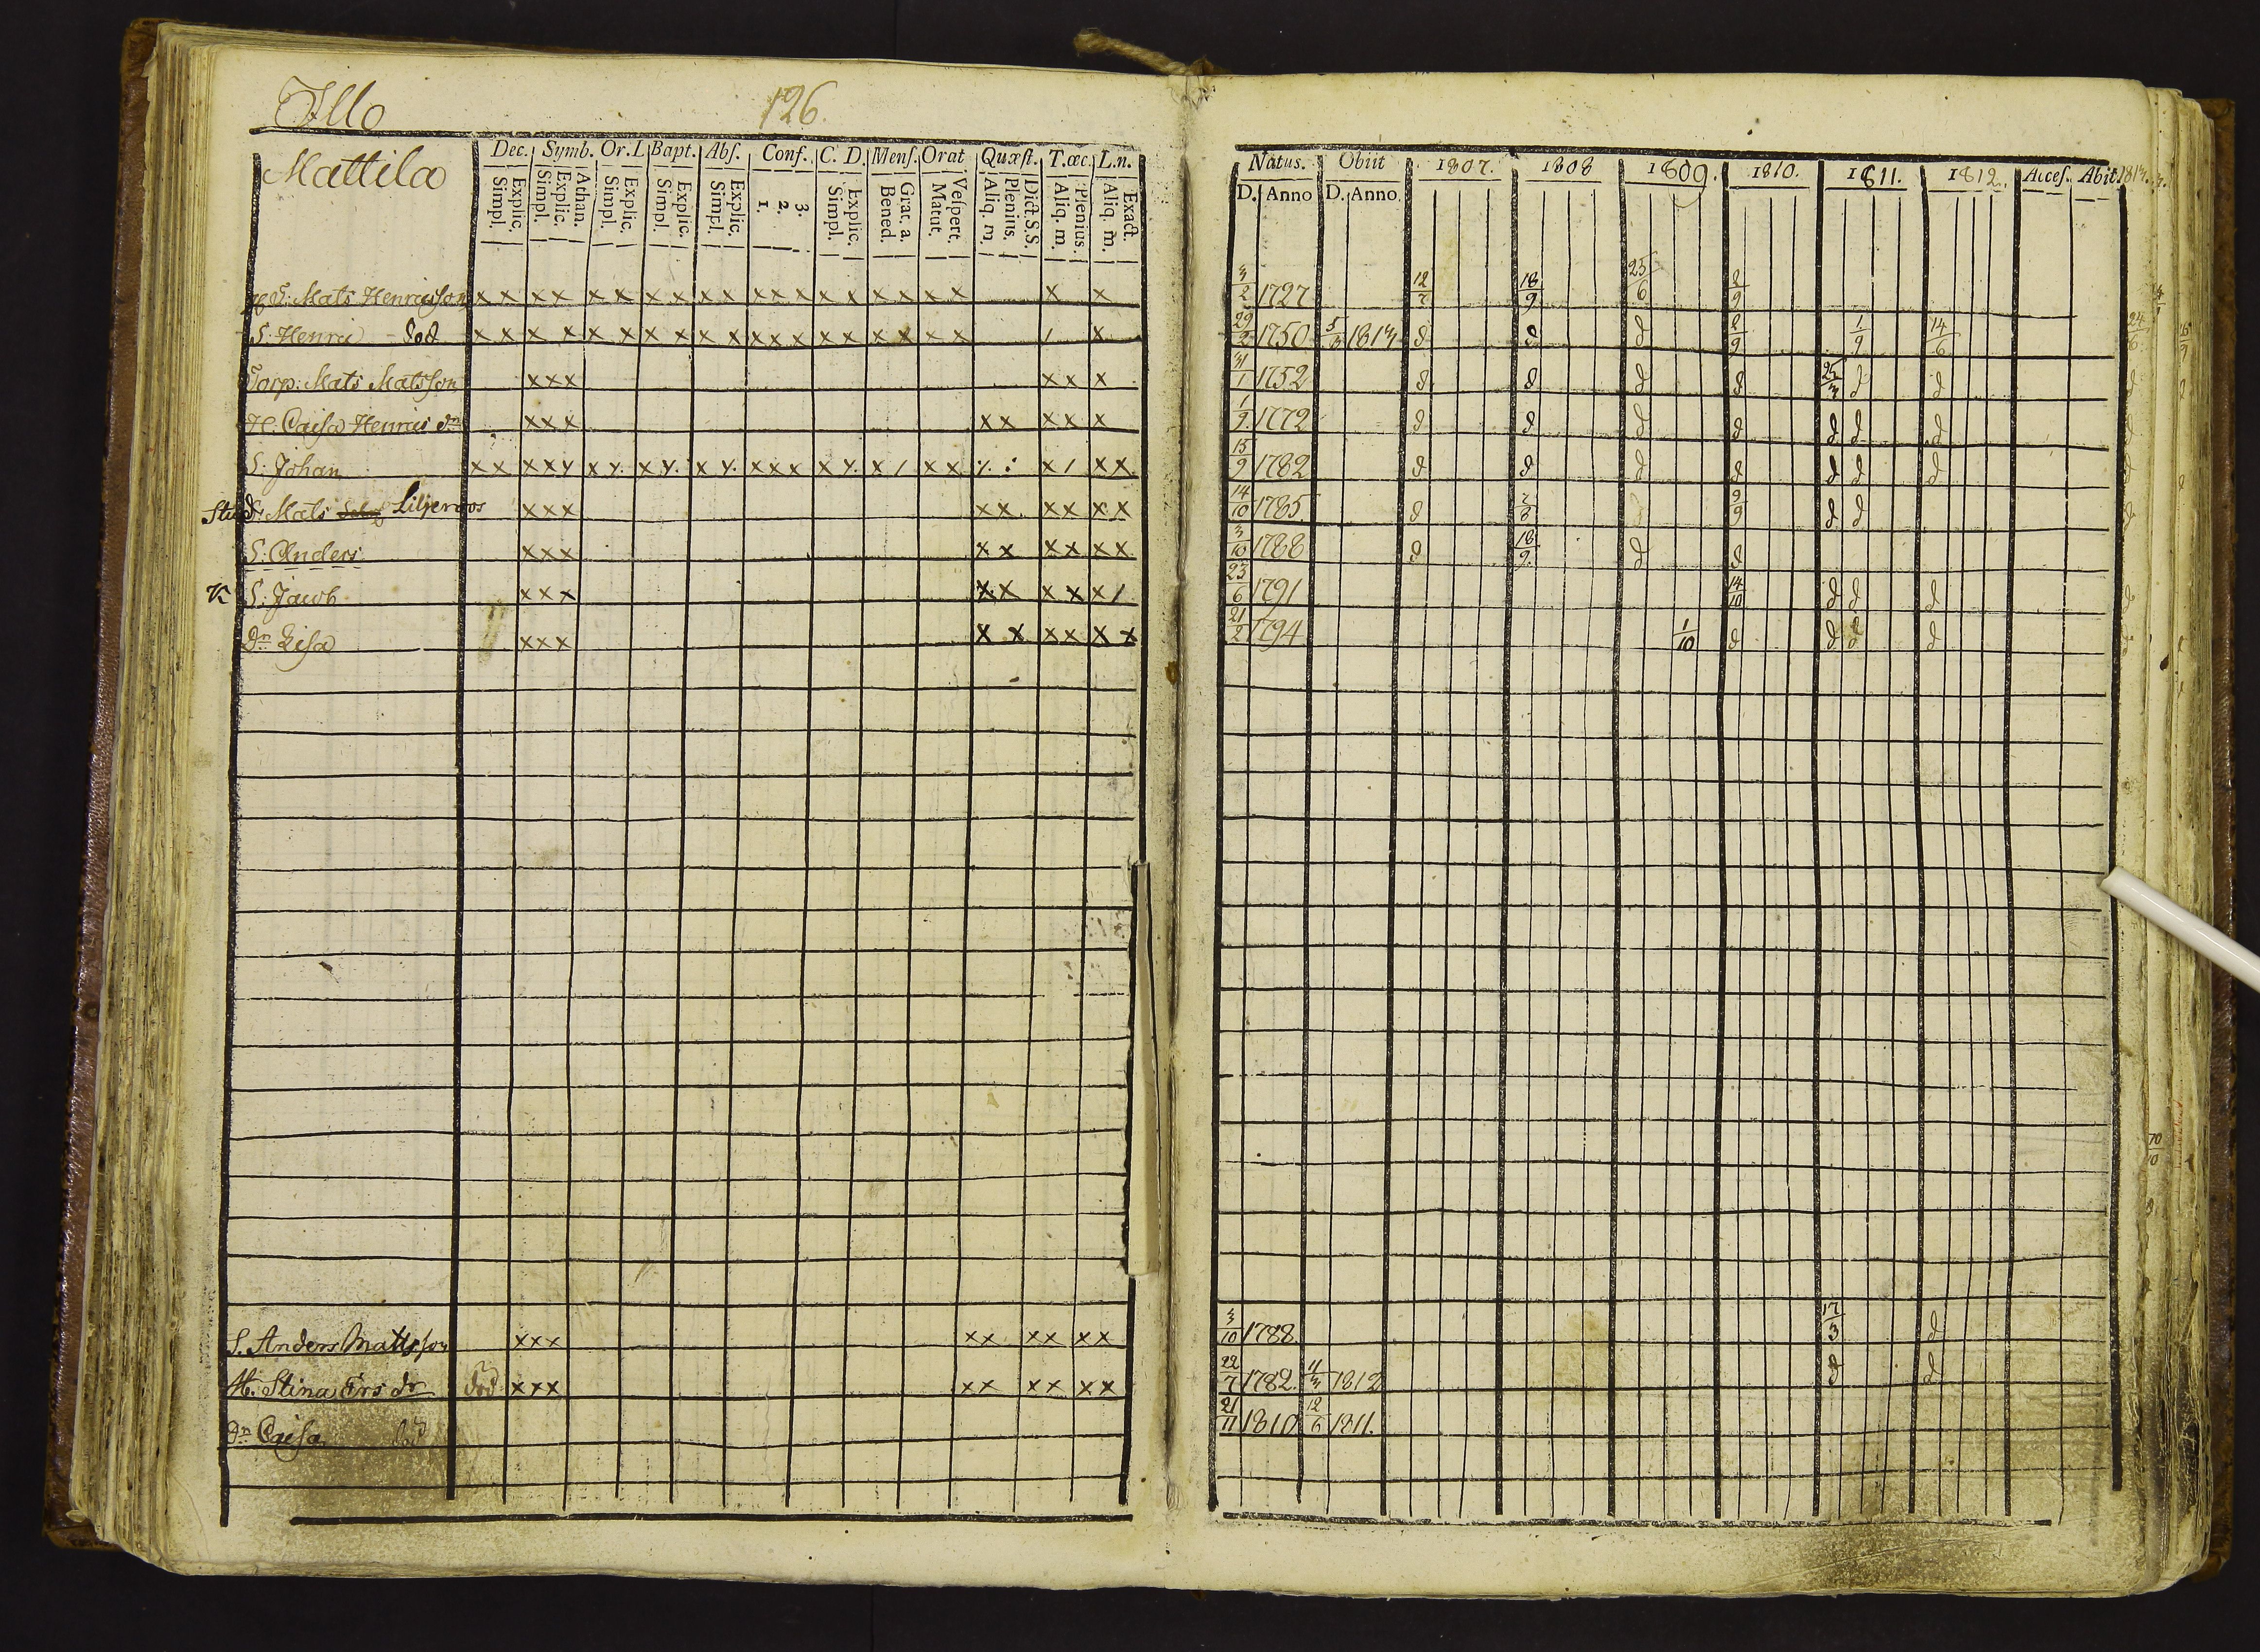 Illo 126
Mattila
Dec. Symb. Or. L Bapt. Abſ. Conf. C. D. Menſ. Orat Quæſt. T. œc. L. n.
Simpl. Explic. Simpl. Explic. Athan. Simpl. Explic. Simpl. Explic. Simpl. Explic. 1. 2. 3. Simpl. Explic. Bened. Grat. a. Matut. Veſpert. Aliq. m. Plenius. Dict. S.S. Aliq. m. Plenius. Aliq. m. Exact.
Mats Henricsson x x x x x x x x x x x x x x x x x x x x x
S: Henric död x x x x x x x x x x x x x x x x x x x / x
Torp: Mats Matsson x x x x x x
H. Caisa Henrics dr x x x x x x x x
S: Johan x x x x y x y. x y. x y. x x x x y. x / x x x / x x
Stud S: Mats Liljeroos x x x x x x x x x
S: Anders x x x x x x x x x
S: Jacob x x x x x x x x /
Dr Lisa x x x x x x x x x
S. Anders Mattsson x x x x x x x x x
H. Stina Ers dr död x x x x x x x x x
Dr Caisa död
Natus. Obiit 1807. 1808 1809. 1810. 1811. 1812. Acceſ. Abit. 1813.
D. Anno D. Anno
3/2 1727 12/7 18/9 25/6 2/9
29/2 1750 5/3 1813 d d d 2/9 1/9 14/6 24/6
31/1 1752 d d d d 25/3 d d d
1/9 1772 d d d d d d d d
15/9 1782 d d d d d d d d
14/10 1785 d 7/8 d 9/9 d d d
3/10 1788 d 18/9. d d
23/6 1791 14/10 d d d d
21/2 1794 1/10 d d d d
3/10 1788 17/3 d
22/7 1782. 11/3 1812 d d
21/11 1810 12/6 1811.